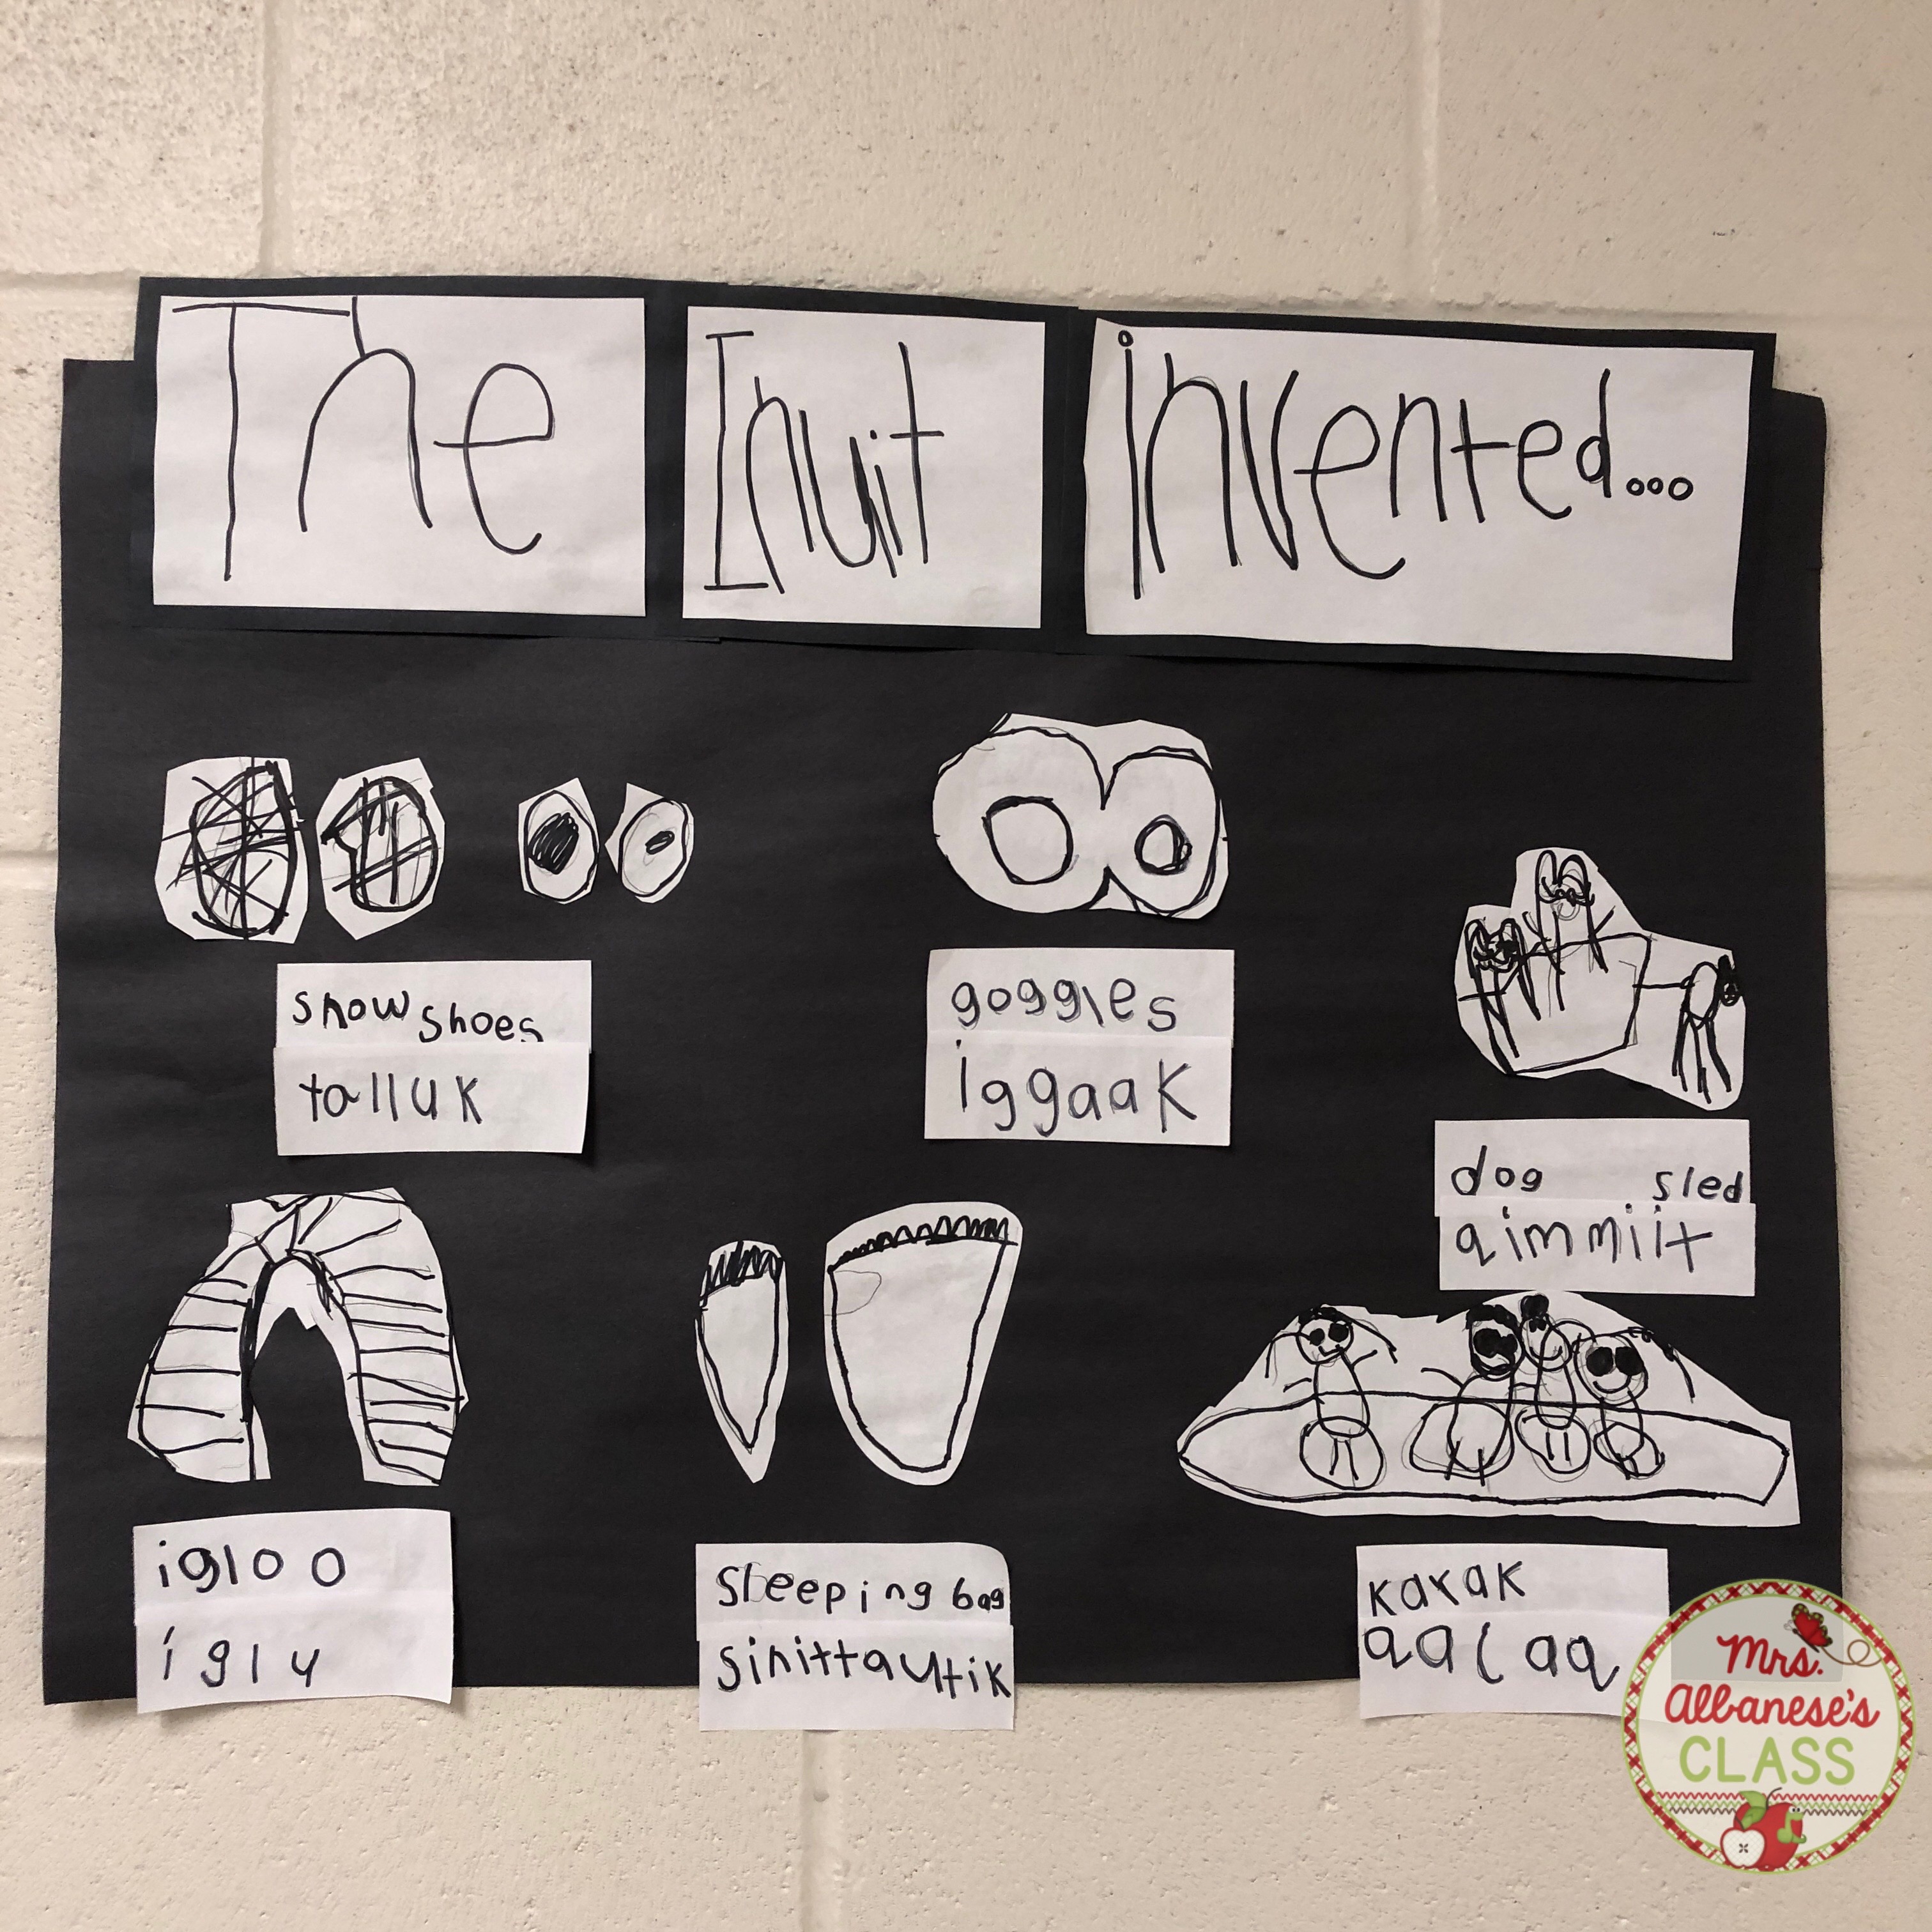 The Inuit invented...
snow shoes
talluk
goggles
iggaak
dog sled
qimmiit
igloo
igly
sleeping bag
sinittautik
kayak
qaсaq
Mrs.
Albanese's
CLASS